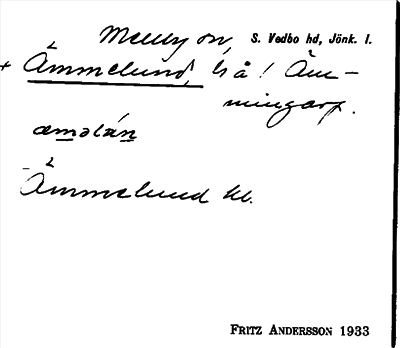 Mellby sn, S. Vedbo hd, Jönk. l.
+ Ämmelund, ls å! Äm-
mingarp.
æməlán
Ämmelund kl.
FRITZ ANDERSSON 1933